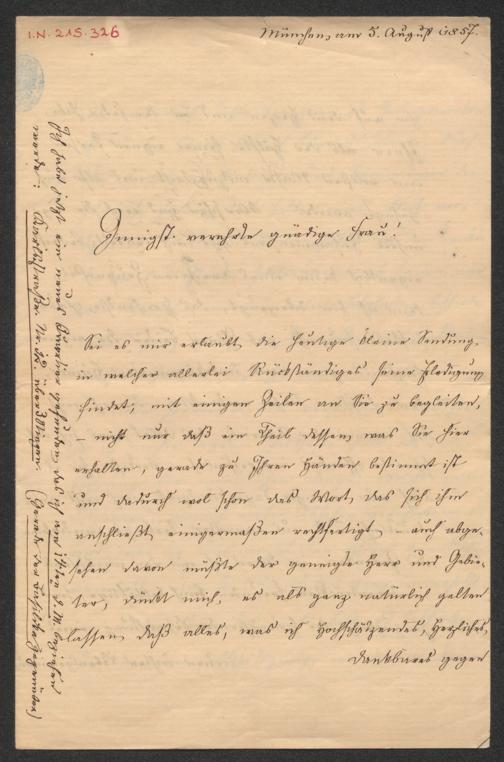 I.N. 215.326
München, am 5. August 1857.
Innigst verehrte gnädige Frau!
Sei es mir erlaubt, die heutige kleine Sendung,
in welcher allerlei Rückständiges seine Erledigung
findet, mit einigen Zeilen an Sie zu begleiten,
– nicht nur daß ein Theil dessen, was Sie hier
erhalten, gerade zu Ihren Händen bestimmt ist
und dadurch wol schon das Wort, das sich ihm
anschließt, einigermaßen rechtfertigt – auch abge-
sehen davon müßte der geneigte Herr und Gebie-
ter, dünkt mich, es als ganz natürlich gelten
lassen, daß alles, was ich Hochschätzendes, Herzliches,
dankbares gegen
Ich habe jetzt ein neues Quartier gefunden, das ich am
werde: Karlstraße No. über 3 Stiegen (Gerade der Basilika gegenüber)